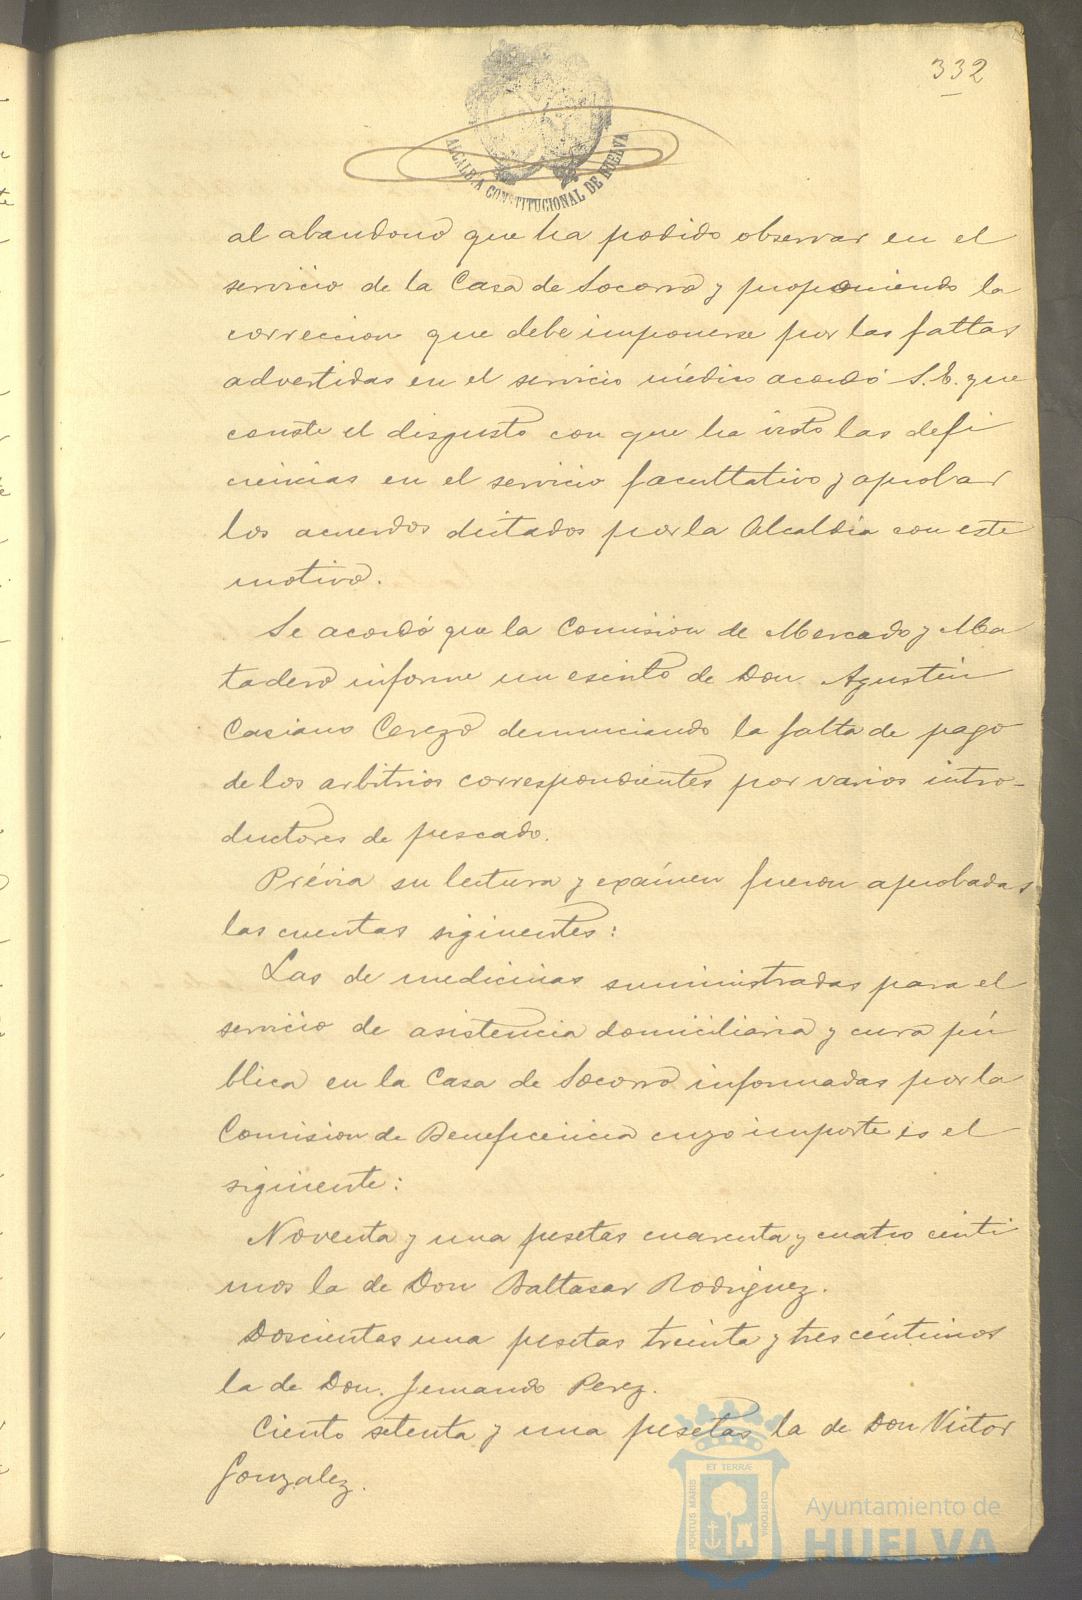 332
ALCALDIA CONSTITUCIONAL DE HUELVA
al abandono que ha podido observar en el
servicio de la Casa de Socorro y proponiendo la
correccion que debe imponerse por las faltas
advertidas en el servicio médico acordó S. E. que
conste el disgusto con que ha visto las defi
ciencias en el servicio facultativo y aprobar
los acuerdos dictados por la Alcaldia con este
motivo.
Se acordó que la Comision de Mercado y Ma
tadero informe un escrito de Don Agustin
Casiano Cerezo denunciando la falta de pago
de los arbitrios correspondientes por varios intro-
ductores de pescado.
Prévia su lectura y exámen fueron aprobadas
las cuentas siguientes:
Las de medicinas suministradas para el
servicio de asistencia domiciliaria y cura pú
blica en la Casa de Socorro informadas por la
Comision de Beneficencia cuyo importe es el
siguiente:
Noventa y una pesetas cuarenta y cuatro cénti
mos la de Don Baltasar Rodriguez.
Doscientas una pesetas treinta y tres céntimos
la de Don. Fernando Perez.
Ciento setenta y una pesetas la de Don Victor
Gonzalez.
PORTUS MARIS ET TERRÆ CUSTODIA
Ayuntamiento de
HUELVA